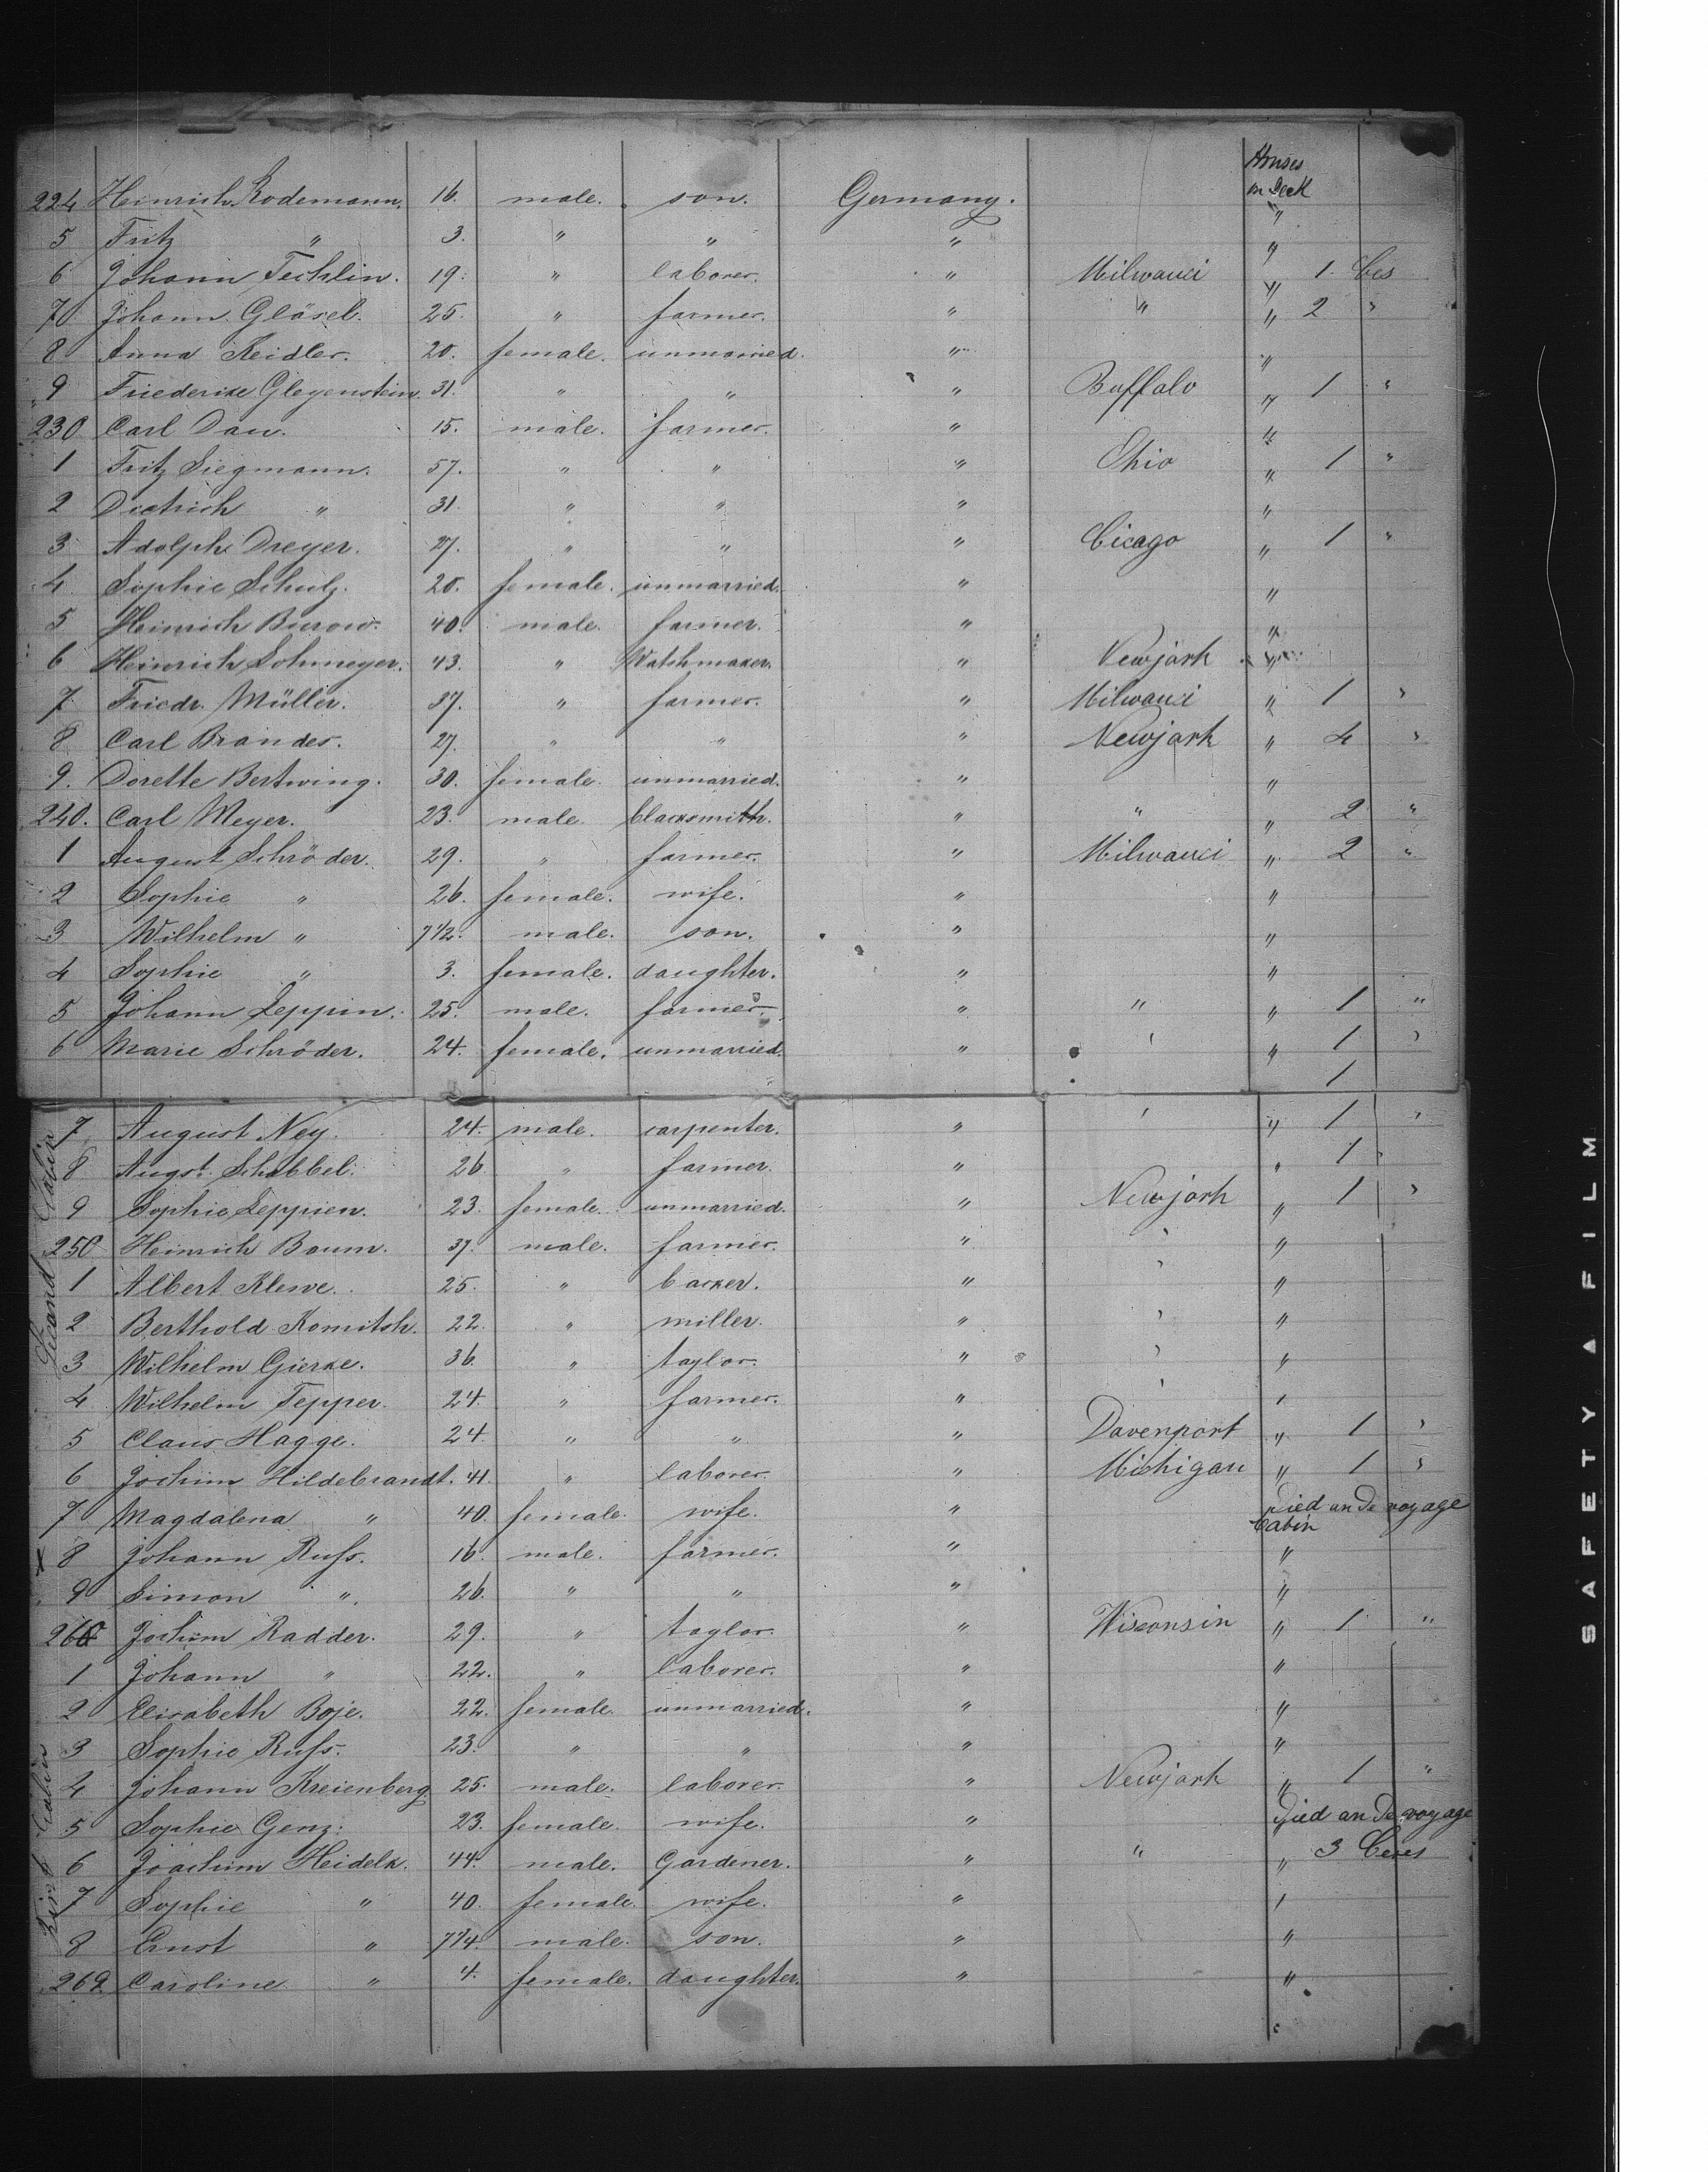 Houses
on Deck
224 Heinrich Rodemann. 16. male. son. Germany. "
5 Fritz " 3. " " " "
6 Johann Techlin. 19. " laborer. " Milwauci " 1. Ces
7 Johann Gläsel. 25. " farmer. " " " 2 "
8 Anna Reidler. 20. female. unmarried. " "
9 Friederike Glegenstein. 31. " " " Buffalo " 1 "
230 Carl Dau. 15. male. farmer. " "
1 Fritz Siegmann. 57. " " " Ohio " 1 "
2 Dietrich " 31 " " " "
3 Adolph Dreyer. 27. " " " Cicago " 1 "
4 Sophie Schulz. 20. female. unmarried. " "
5 Heinrich Burow. 40. male. farmer. " "
6 Heinrich Lohmeyer. 43. " Watchmaker. " Newjork "
7 Friedr. Müller. 37. " farmer. " Milwauci " 1 "
8 Carl Brandes. 27. " " " Newjork " 4 "
9. Dorette Bertwing. 30. female. unmarried. " "
240. Carl Meyer. 23. male. blacksmith. " " " 2 "
1 August Schröder. 29. " farmer. " Milwauci " 2 "
2 Sophie " 26. female. wife. " "
3 Wilhelm " 7 1/2. male. son. " "
4 Sophie " 3. female. daughter. " "
5 Johann Leppin. 25. male. farmer. " " " 1 "
6 Marie Schröder. 24. female. unmarried. " " " 1 "
1
7 August Ney. 24. male. carpenter. " " " 1 "
8 Augst. Schabbel. 26 " farmer. " " 1 "
9 Sophie Leppien. 23. female. unmarried. " Newjork " 1 "
250 Heinrich Baum. 37. male. farmer. " " "
1 Albert Klewe. 25. " backer. " " "
2 Berthold Komitsh. 22 " miller. " " "
3 Wilhelm Gierke. 36. " taylor. " " "
4 Wilhelm Tepper. 24. " farmer. " " "
5 Claus Hagge. 24. " " " Davenport " 1 "
6 Jochim Hildebrandt. 41. " laborer. " Michigan " 1 "
7 Magdalena " 40. female. wife. " Died an de voyage
Cabin
8 Johann Rufs. 16. male. farmer. " "
9 Simon " 26. " " " "
260 Jochim Radder. 29. " taylor. " Wisconsin " 1 "
1 Johann " 22. " laborer. " "
2 Elisabeth Boje. 22. female. unmarried. " "
3 Sophie Rufs. 23. " " " "
4 Johann Kreienberg 25. male. laborer. " Newjork " 1 "
5 Sophie Genz. 23. female. wife. " Died an de voyage
6 Joachim Heidelk. 44. male. Gardener. " " " 3 Ces
7 Sophie " 40. female. wife. " "
8 Ernst " 7 3/4. male. son. " "
269 Caroline " 4. female. daughter. " "
Secand Cabin
First Cabin
SAFETY A FILM